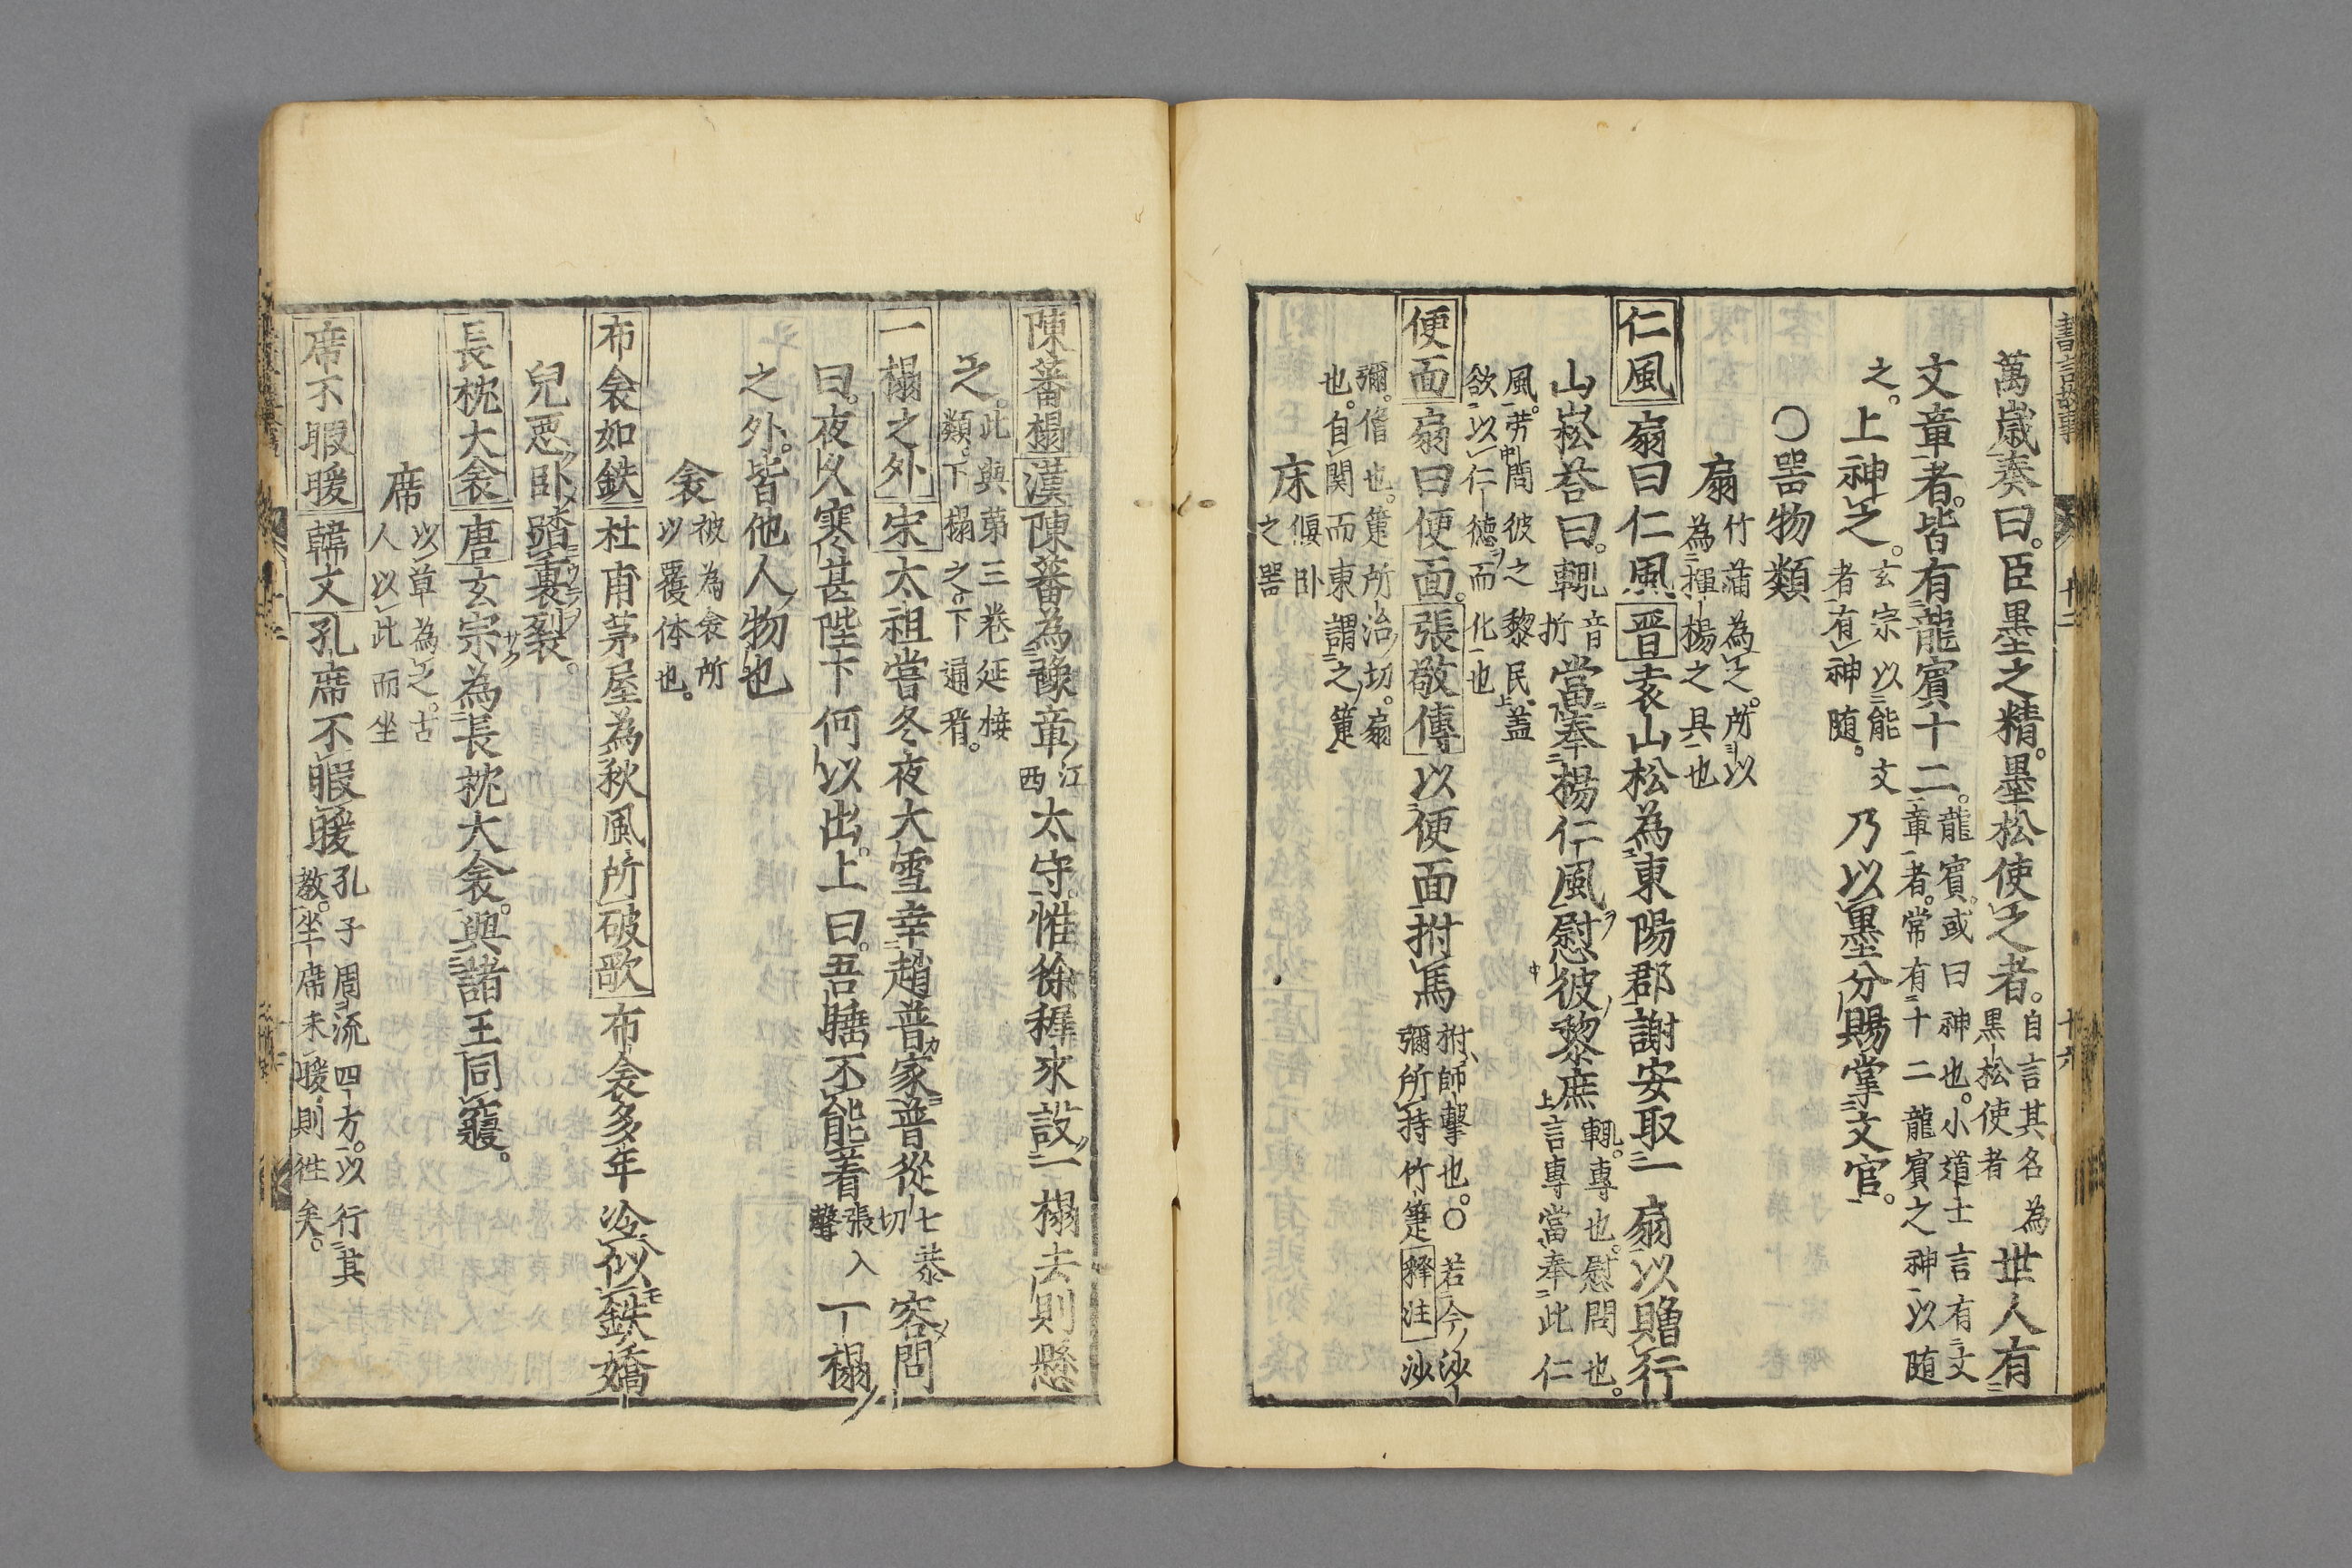 萬歲奏曰臣墨之精墨松使之者。自言其名為黒松使者世人有
文章者。皆有龍賓十二。龍賓或曰神也。小道士言有文章者。常有十二龍賓之神以随
之。上神之。玄宗以能文者有神随。乃以墨分賜掌文官。
〇噐物類
扇 竹蒲為之。所以為揮揚之具也
仁風 扇曰仁風 晋袁山松為東陽郡謝安取一扇以贈行
山崧荅曰。輒音折當奉揚仁風慰彼黎庶 輒。專也。慰問也。言專當奉此仁
風。労問彼之黎民。盖欲以仁德而化也
便面 扇曰便面。張敞傳以便面拊馬 拊、師擊也。〇若今沙彌所持竹箑释注沙
彌。僧也。箑所治切。扇也。自関而東謂之箑
床 偃卧之噐
陳蕃榻 漢陳蕃為豫章江西太守。惟徐穉來設一榻去則懸
之。此與苐三卷延接類。下榻之下通看。
一榻之外 宋太祖嘗冬夜大雪幸趙普家普從七恭切容問
曰。夜久寒甚陛下何以出。上曰。吾睡不能着張入聲一榻
之外。皆他人物也
衾 被為衾所以覆体也。
布衾如鉄 杜甫茅屋為秋風所破歌布衾多年冷似鉄嬌
兒惡卧踏裏裂。
長枕大衾 唐玄宗為長枕大衾。與諸王同寢。
席 以草為之。古人以此而坐
席不暇暖 韓文孔席不暇暖 孔子周流四方。以行其教。坐席未暖則徃矣。